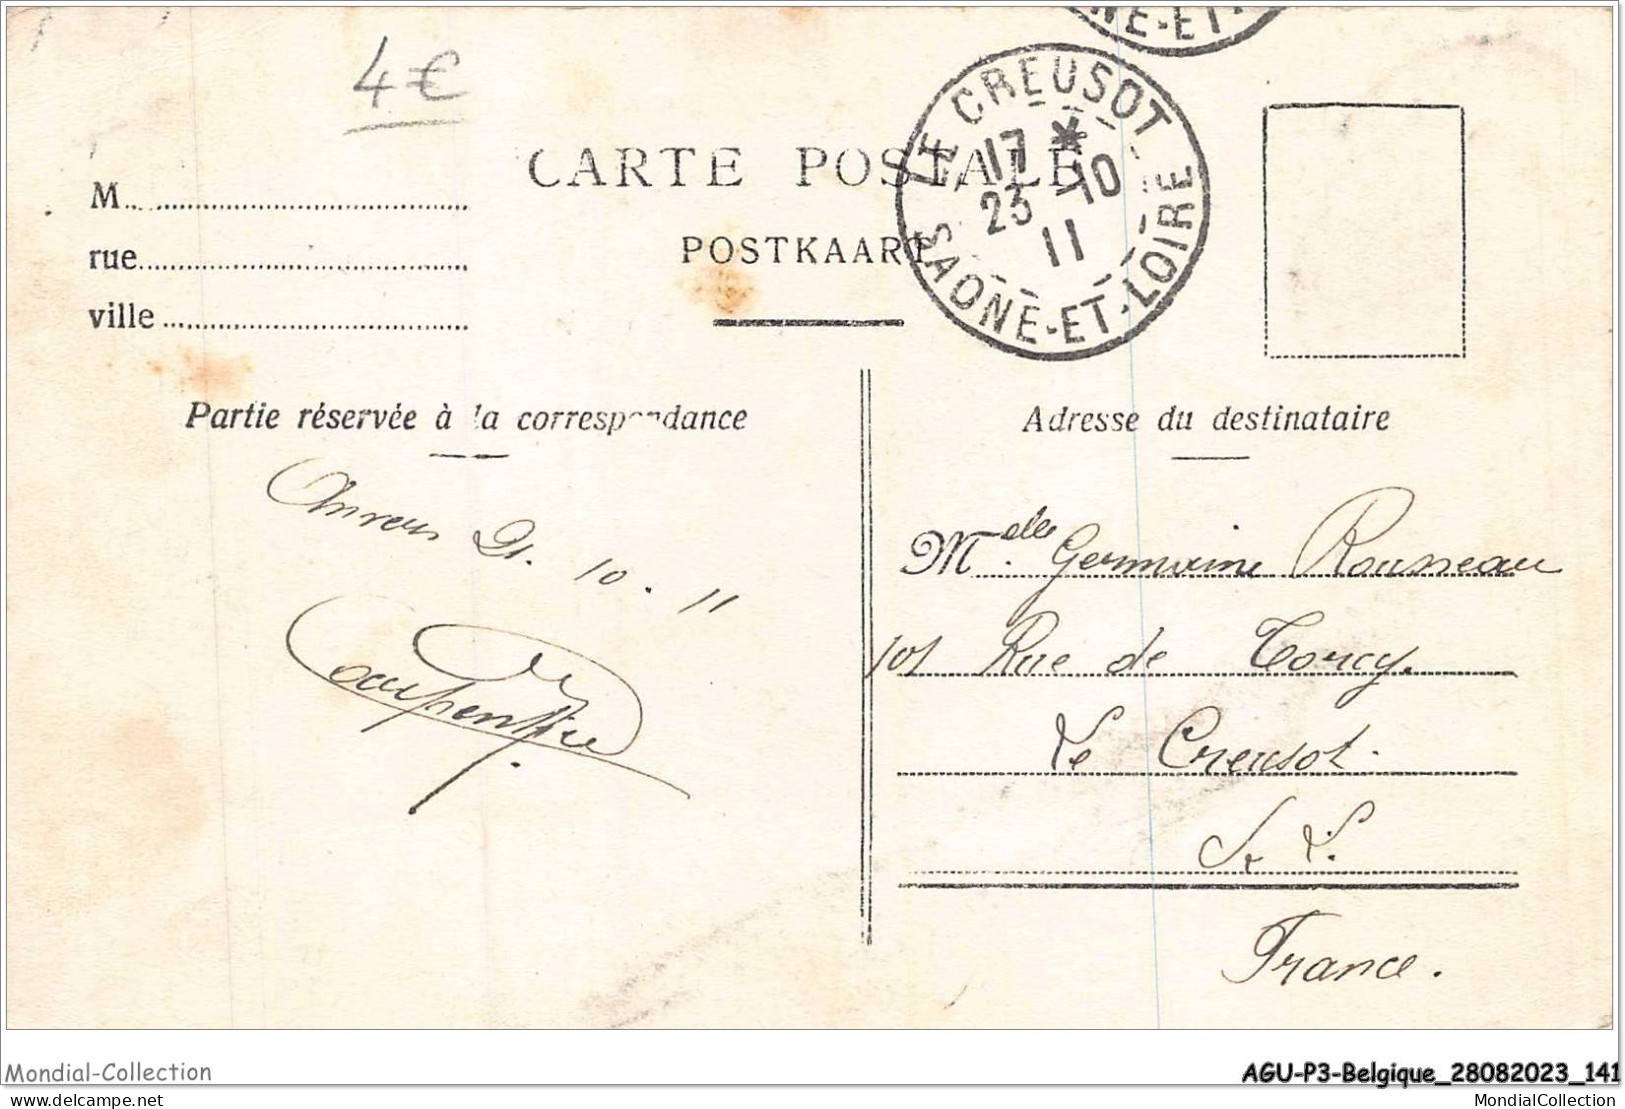 NE-ET-
4€
LE CREUSOT
17 *
23 -10
11
SAONE-ET-LOIRE
CARTE POSTALE
POSTKAART
M
rue
ville
Partie réservée à la correspondance
Adresse du destinataire
Anvers 21. 10. 11
Carpentier
M.elle Germaine Rousseau
101 Rue de Torcy.
Le Creusot.
S et L.
France.
Mondial-Collection
AGU-P3-Belgique_28082023_141
delcampe.net
MondialCollection